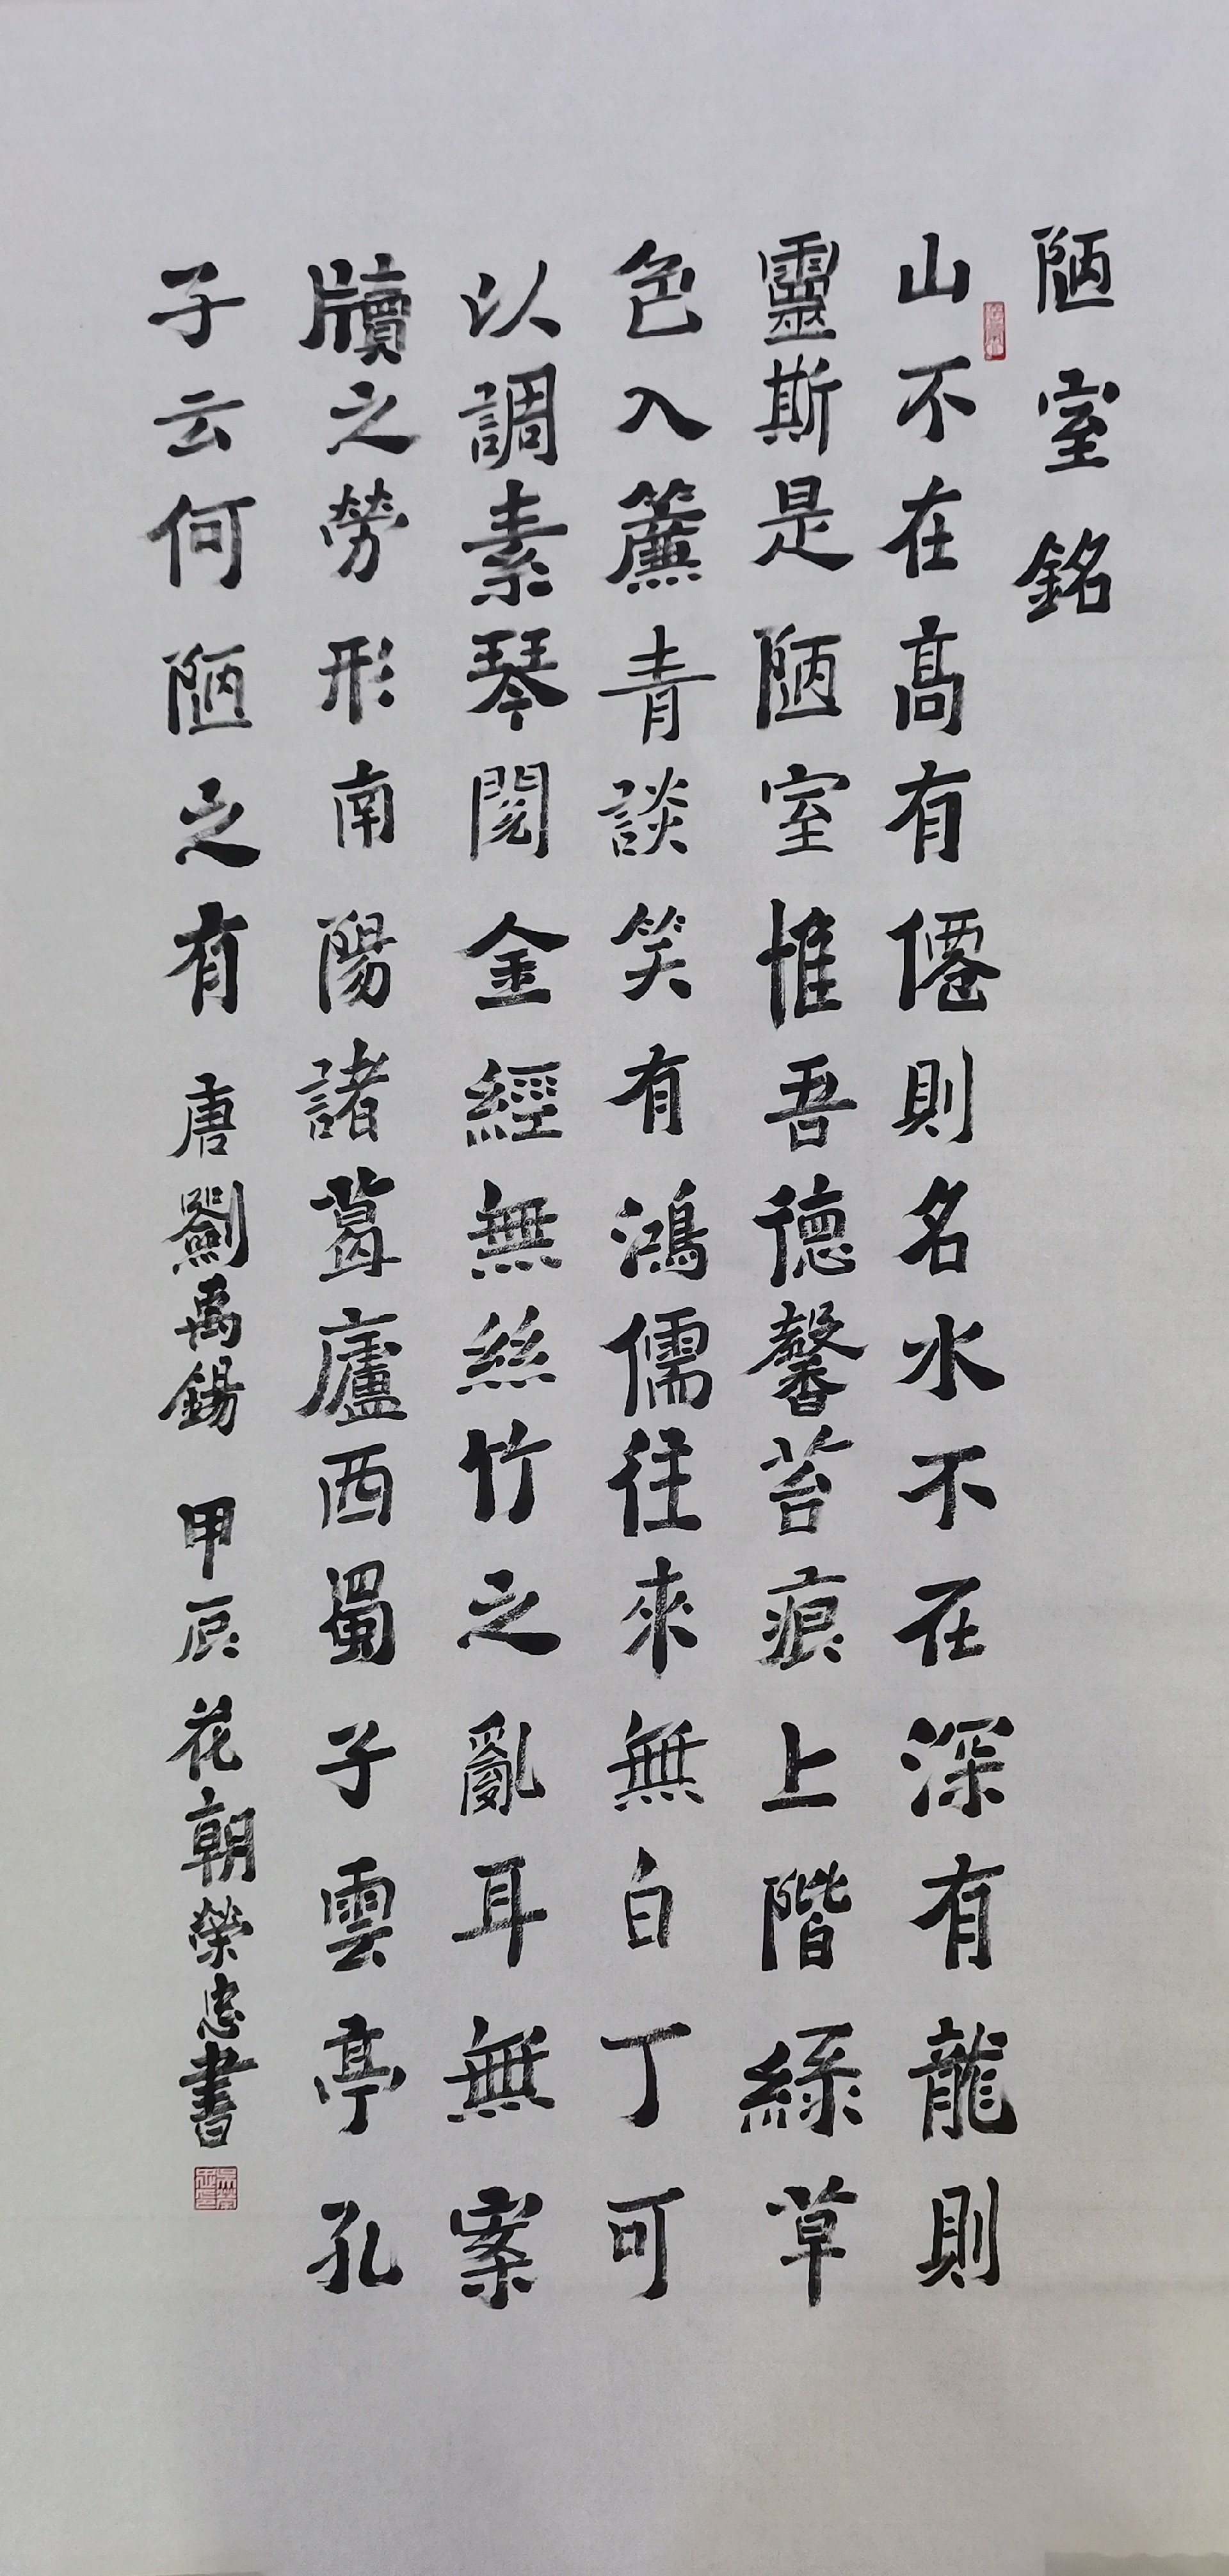 陋室銘
山不在高有僊則名水不在深有龍則
靈斯是陋室惟吾德馨苔痕上階緑草
色入簾青談笑有鴻儒往來無白丁可
以調素琴閲金經無絲竹之亂耳無案
牘之勞形南陽諸葛廬西蜀子雲亭孔
子云何陋之有 唐劉禹錫 甲辰花朝榮忠書